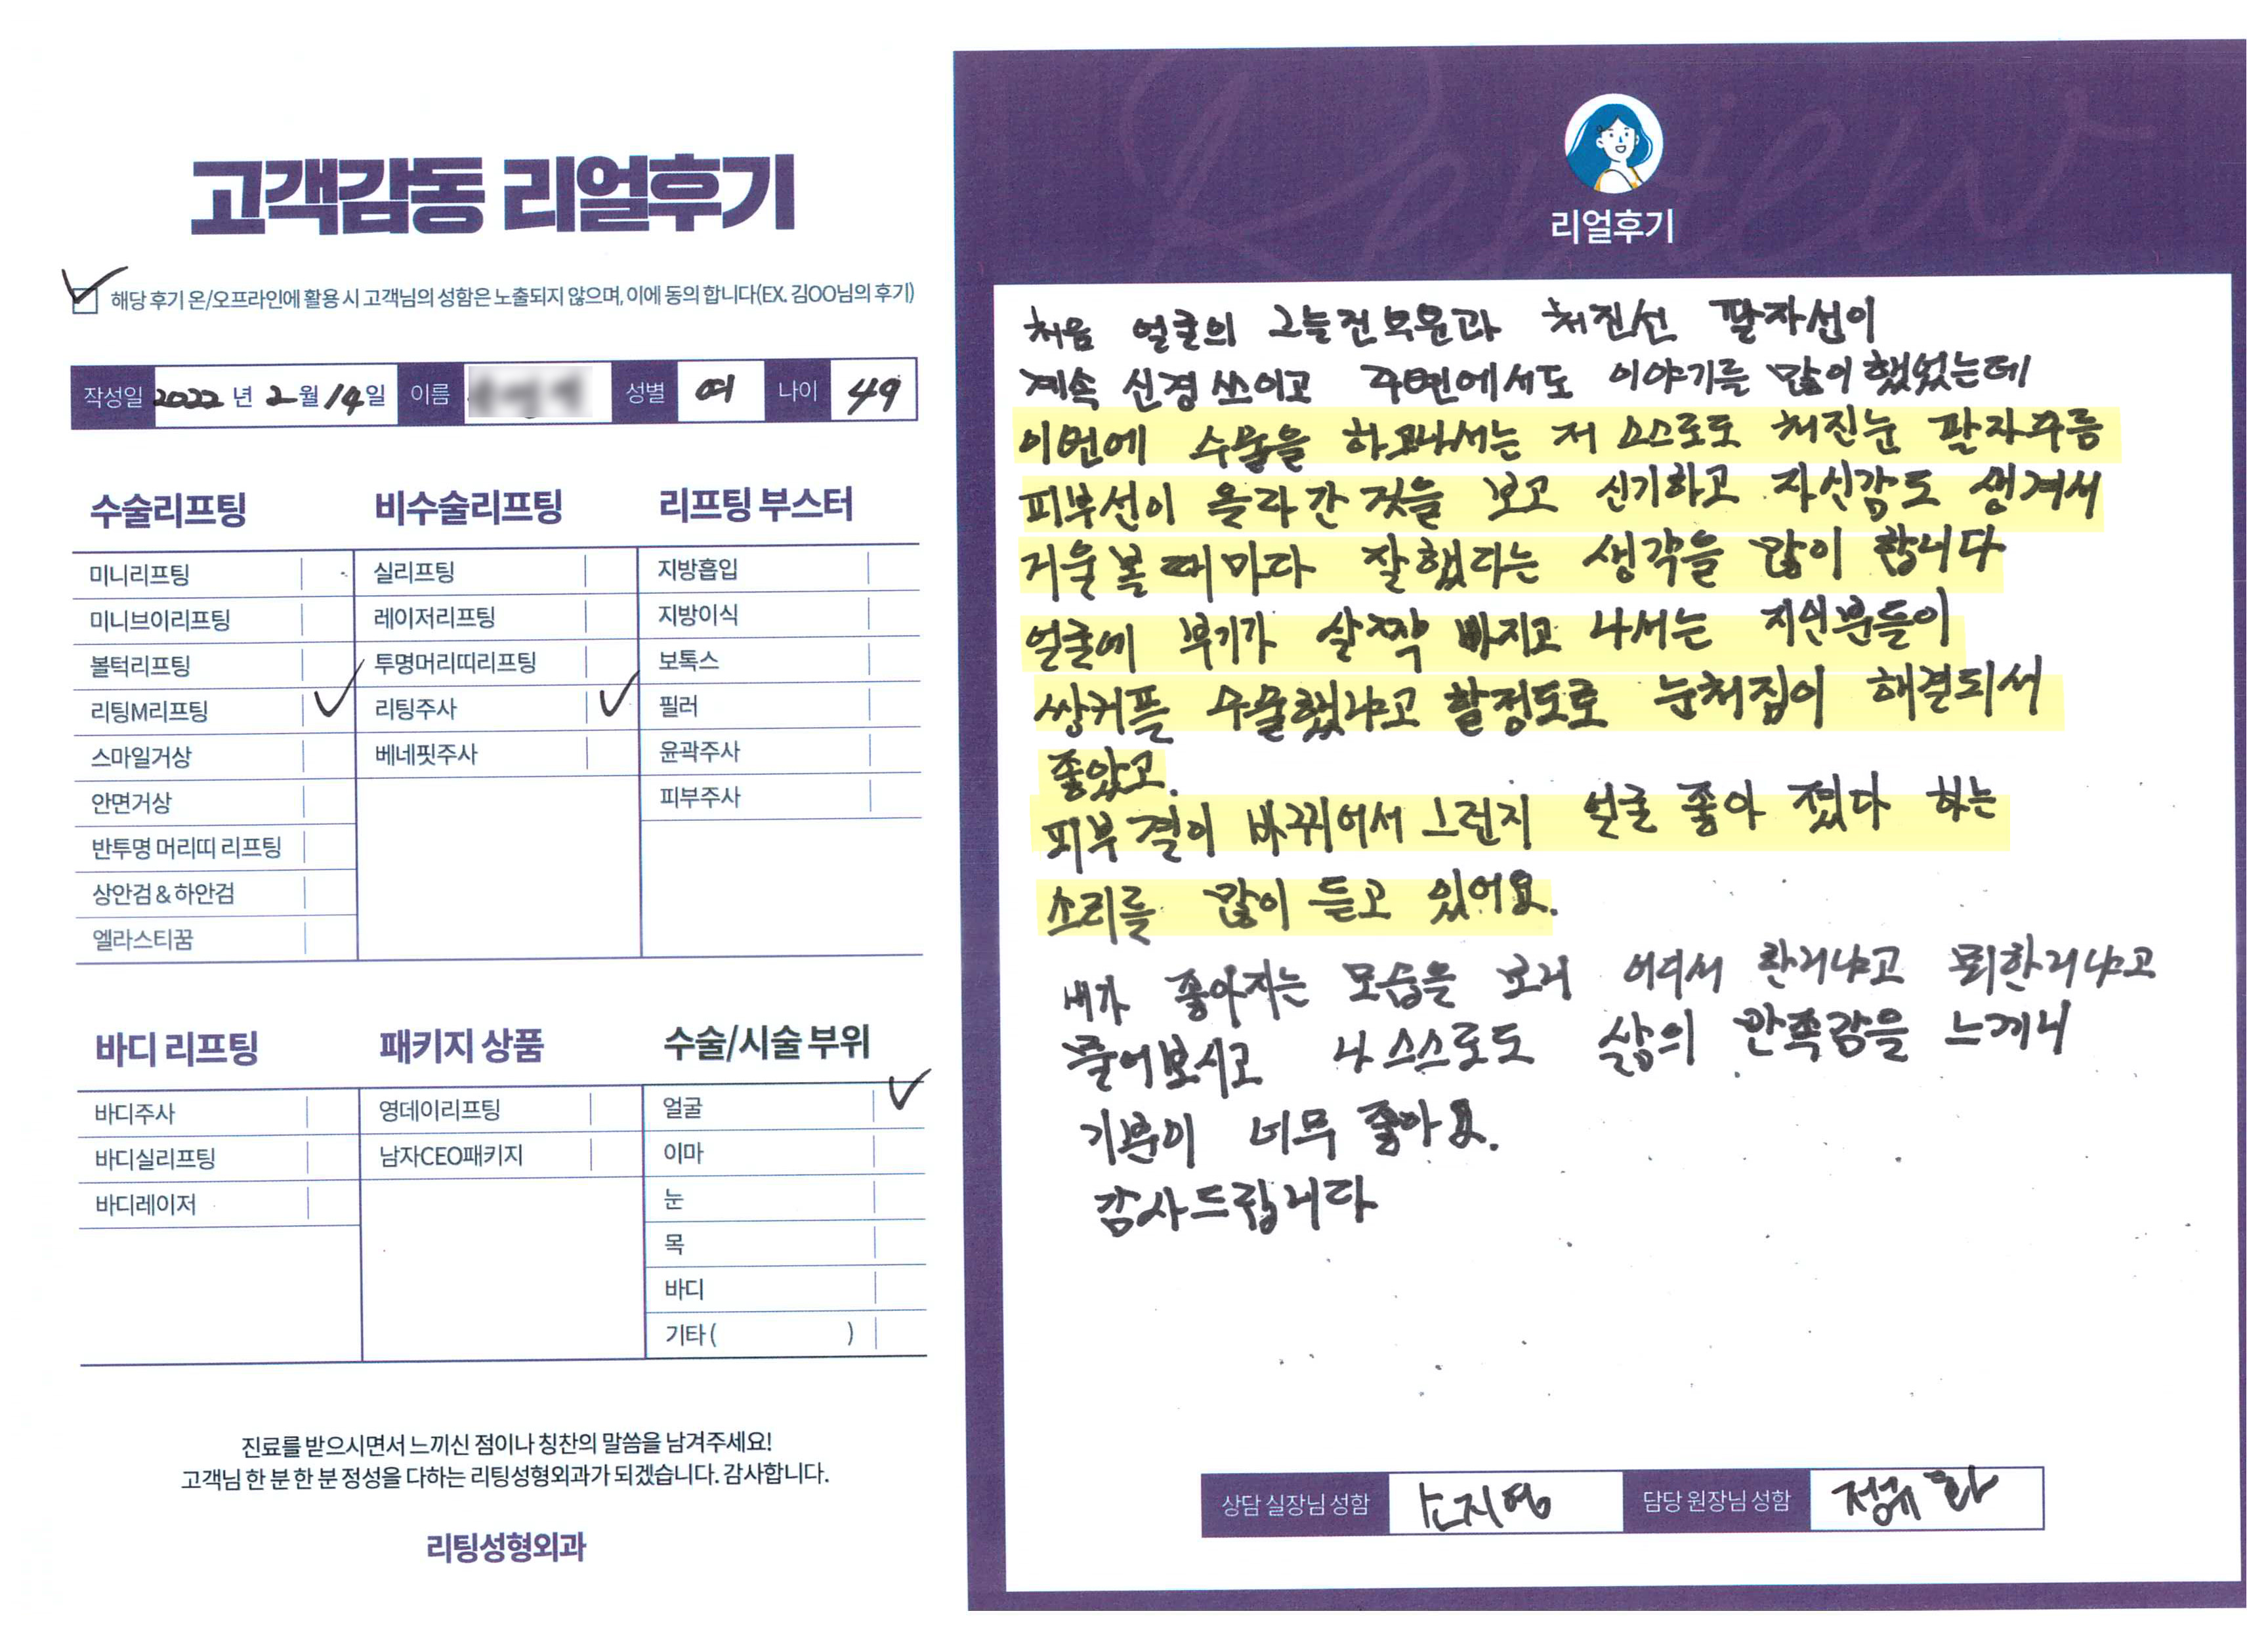 고객감동 리얼후기
해당 후기 온/오프라인에 활용 시 고객님의 성함은 노출되지 않으며, 이에 동의 합니다(EX. 김OO님의 후기)
작성일 2022년 2월 14일 이름 성별 여 나이 49
수술리프팅
미니리프팅
미니브이리프팅
볼턱리프팅
리팅M리프팅
스마일거상
안면거상
반투명 머리띠 리프팅
상안검 & 하안검
엘라스티꿈
비수술리프팅
실리프팅
레이저리프팅
투명머리띠리프팅
리팅주사
베네핏주사
리프팅 부스터
지방흡입
지방이식
보톡스
필러
윤곽주사
피부주사
바디 리프팅
바디주사
바디실리프팅
바디레이저
패키지 상품
영데이리프팅
남자CEO패키지
수술/시술 부위
얼굴
이마
눈
목
바디
기타 ( )
진료를 받으시면서 느끼신 점이나 칭찬의 말씀을 남겨주세요!
고객님 한 분 한 분 정성을 다하는 리팅성형외과가 되겠습니다. 감사합니다.
리팅성형외과
Review
리얼후기
처음 얼굴의 그늘진부분과 처진선 팔자선이
계속 신경 쓰이고 주변에서도 이야기를 많이 했었는데
이번에 수술을 하고나서는 저 스스로도 처진눈 팔자주름
피부선이 올라간 것을 보고 신기하고 자신감도 생겨서
거울 볼 때마다 잘했다는 생각을 많이 합니다
얼굴에 부기가 살짝 빠지고 나서는 지인분들이
쌍커플 수술했냐고 할정도로 눈처짐이 해결되서
좋았고.
피부결이 바뀌어서 그런지 얼굴 좋아 졌다 하는
소리를 많이 듣고 있어요.
내가 좋아지는 모습을 보니 어디서 한거냐고 뭐한거냐고
물어보시고 나 스스로도 삶의 만족감을 느끼니
기분이 너무 좋아요.
감사드립니다
상담 실장님 성함 손지영 담당 원장님 성함